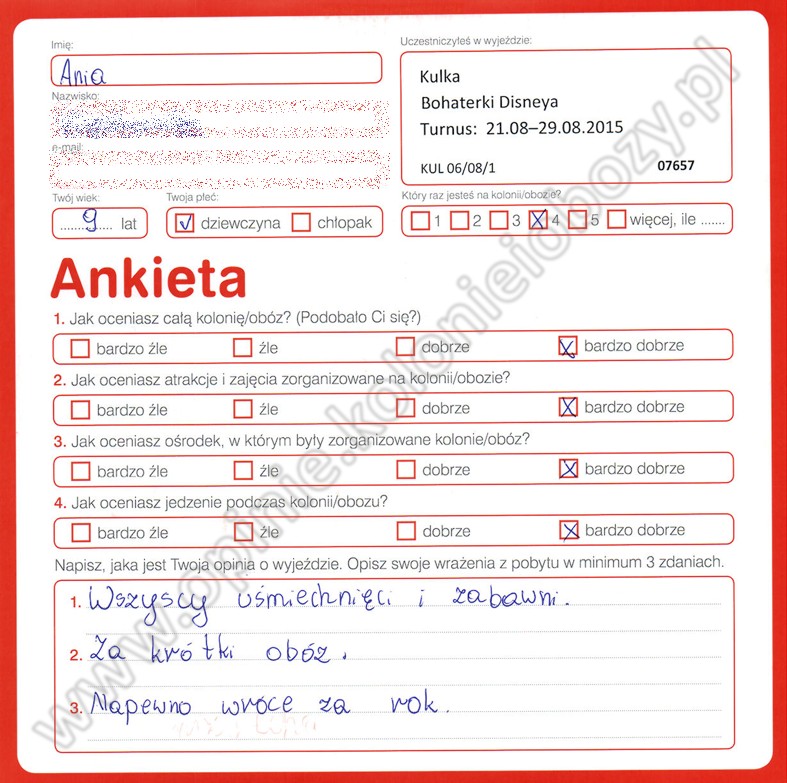 Imię:
Uczestniczyłeś w wyjeździe:
Ania
Kulka
Bohaterki Disneya
Turnus: 21.08–29.08.2015
KUL 06/08/1 07657
Nazwisko:
e-mail:
Twój wiek:
Twoja płeć:
Który raz jesteś na kolonii/obozie?
9 lat
dziewczyna chłopak
1 2 3 4 5 więcej, ile .......
Ankieta
1. Jak oceniasz całą kolonię/obóz? (Podobało Ci się?)
bardzo źle źle dobrze bardzo dobrze
2. Jak oceniasz atrakcje i zajęcia zorganizowane na kolonii/obozie?
bardzo źle źle dobrze bardzo dobrze
3. Jak oceniasz ośrodek, w którym były zorganizowane kolonie/obóz?
bardzo źle źle dobrze bardzo dobrze
4. Jak oceniasz jedzenie podczas kolonii/obozu?
bardzo źle źle dobrze bardzo dobrze
Napisz, jaka jest Twoja opinia o wyjeździe. Opisz swoje wrażenia z pobytu w minimum 3 zdaniach.
1. Wszyscy uśmiechnięci i zabawni.
2. Za krótki obóz.
3. Napewno wróce za rok.
www.opinie.kolonieiobozy.pl